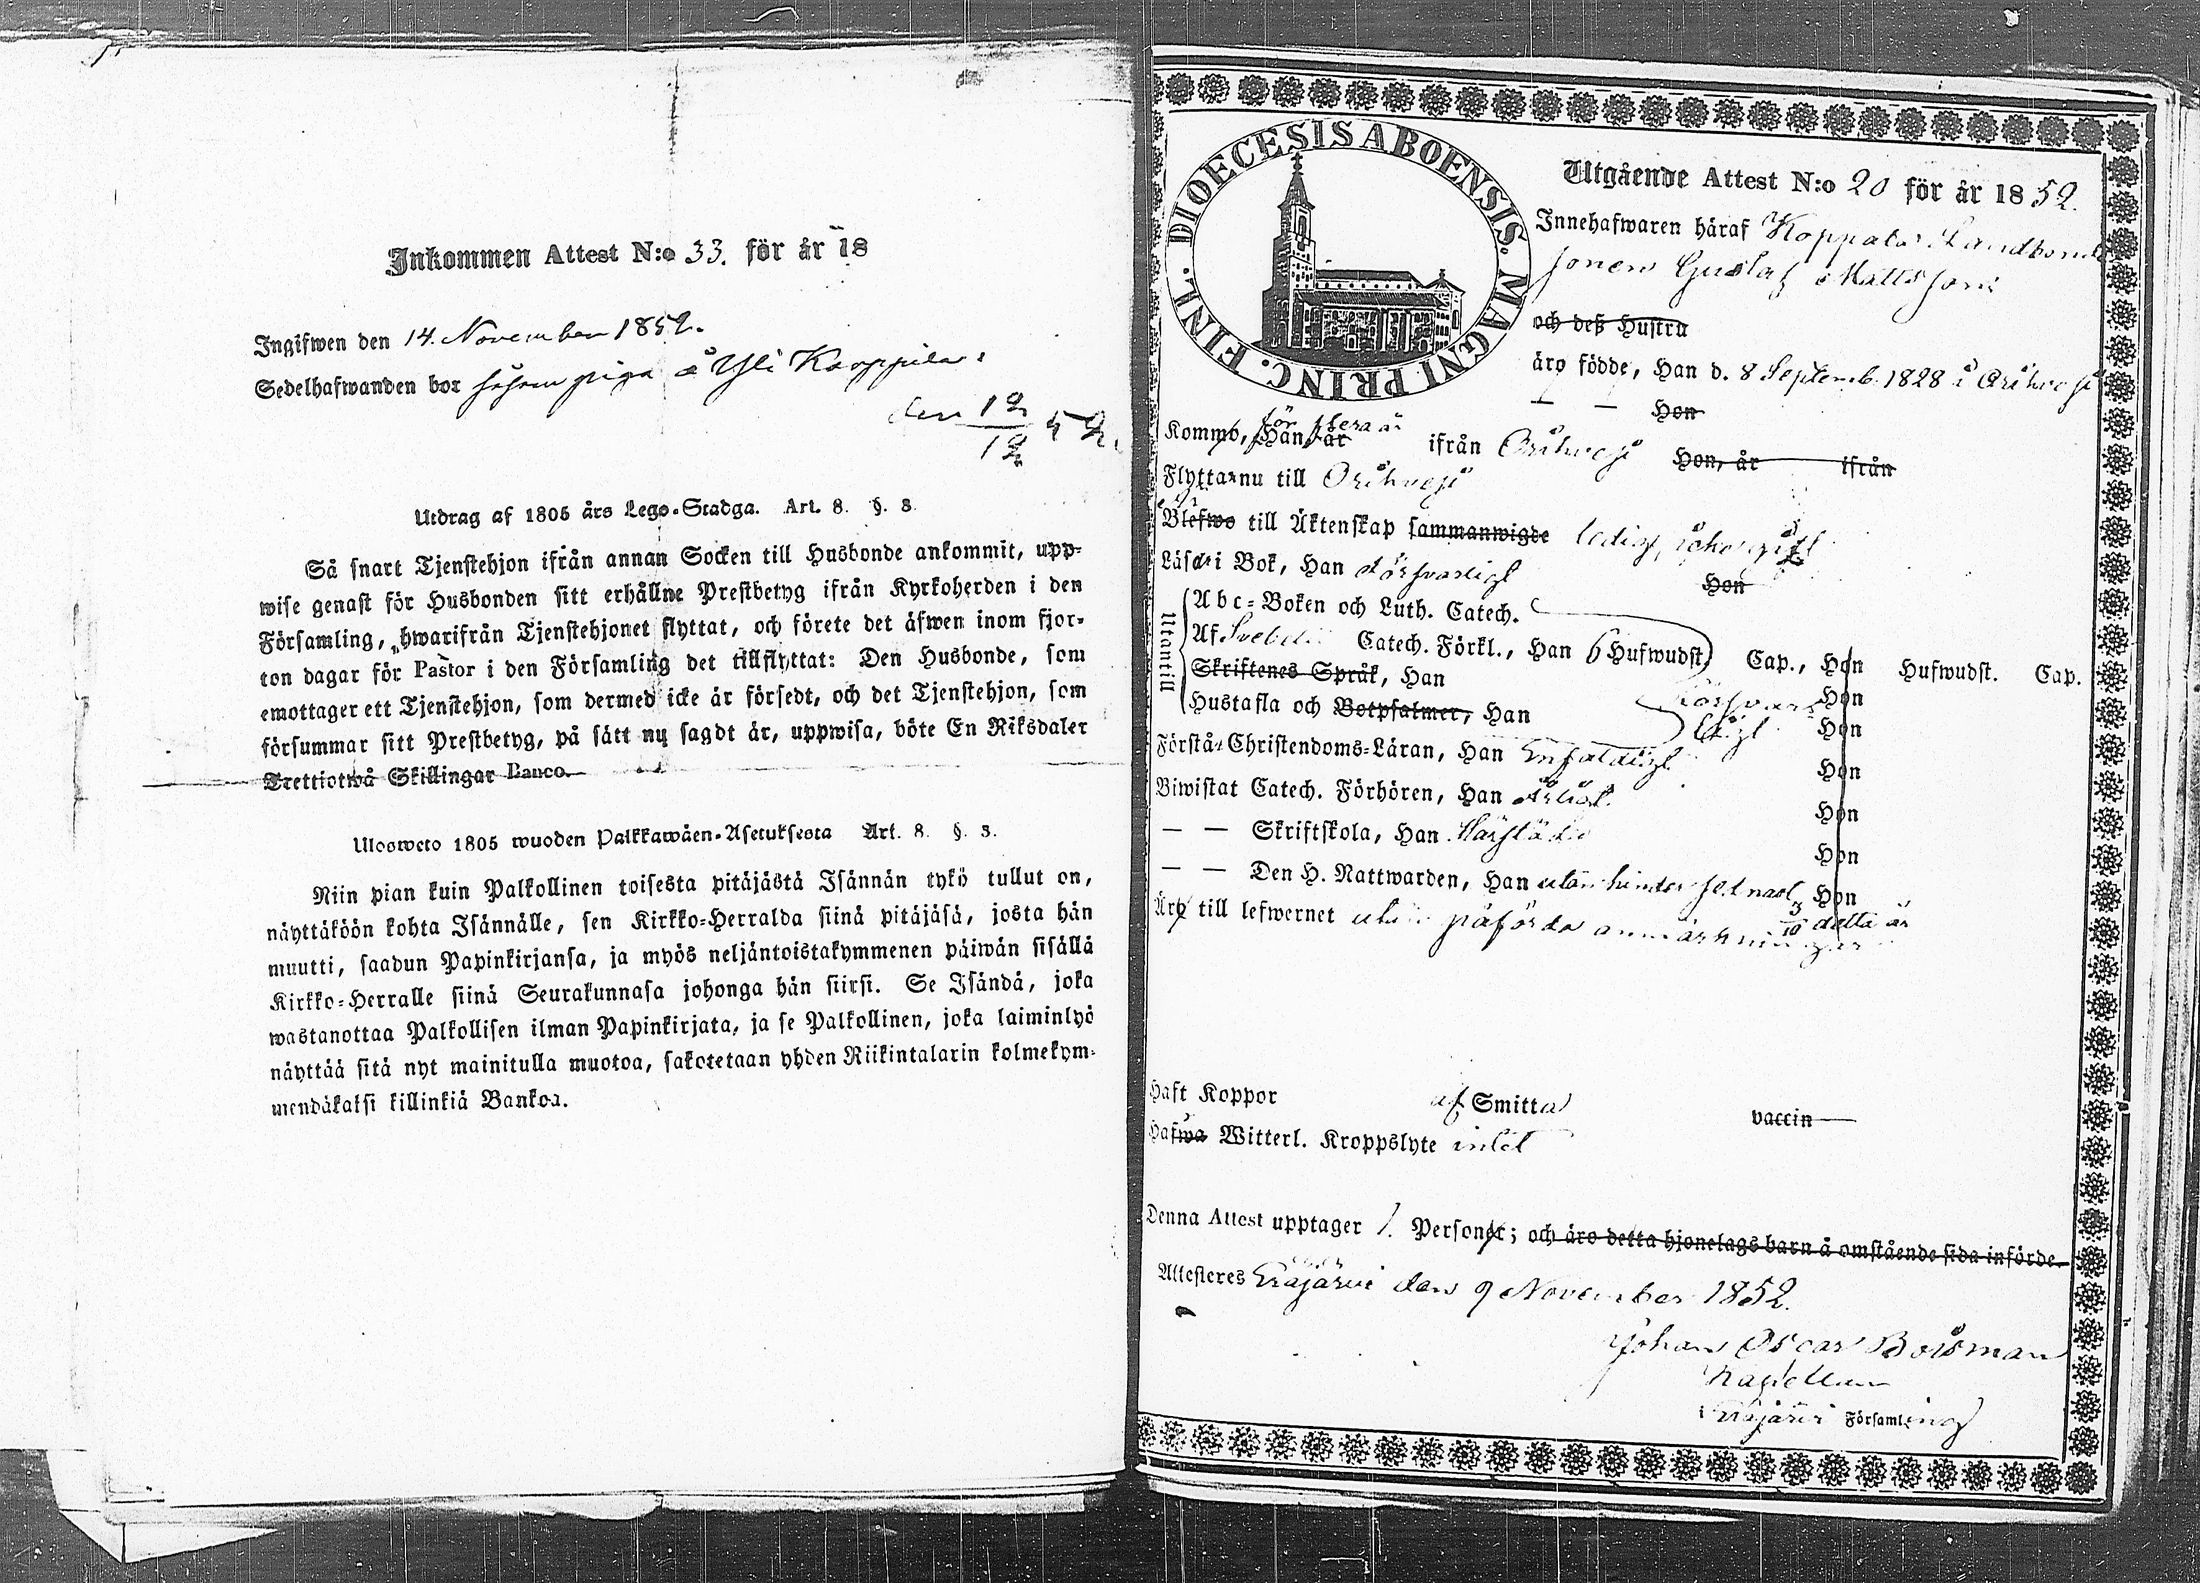 Inkommen Attest N:o 33. för år 18
Ingifwen den 14. November 1852.
Sedelhafwanden bor såsom piga å Yli Karppila
den 12/12 52.
Utdrag af 1805 års Lego-Stadga. Art. 8. §. 3.
Så snart Tjenstehjon ifrån annan Socken till Husbonde ankommit, upp-
wise genast för Husbonden sitt erhållne Prestbetyg ifrån Kyrkoherden i den
Församling, hwarifrån Tjenstehjonet flyttat, och förete det äfwen inom fjor-
ton dagar för Pastor i den Församling det tillflyttat: Den Husbonde, som
emottager ett Tjenstehjon, som dermed icke är försedt, och det Tjenstehjon, som
försummar sitt Prestbetyg, på sätt nu sagdt är, uppwisa, böte En Riksdaler
Trettiotwå Skillingar Banco.
Ulosweto 1805 wuoden Palkkawäen-Asetuksesta Art. 8. §. 3.
Niin pian kuin Palkollinen toisesta pitäjästä Isännän tykö tullut on,
näyttäköön kohta Isännälle, sen Kirkko-Herralda siinä pitäjäsä, josta hän
muutti, saadun Papinkirjansa, ja myös neljäntoistakymmenen päiwän sisällä
Kirkko-Herralle siinä Seurakunnasa johonga hän siirsi. Se Isändä, joka
wastanottaa Palkollisen ilman Papinkirjata, ja se Palkollinen, joka laiminlyö
näyttää sitä nyt mainitulla muotoa, sakotetaan yhden Riikintalarin kolmekym-
mendäkaksi killinkiä Bankoa.
DIOECESIS ABOENSIS. MAGNI PRINC. FINL.
Utgående Attest N:o 20 för år 1852.
Innehafwaren häraf Koppala Landbonde
sonen Gustaf Mattsson
och deß Hustru
äro födde, Han d. 8 Septemb. 1828 i Orihvesi
— — Hon
för flera år
Kommo, Han, år ifrån Orihvesi Hon, år ifrån
Flytta nu till Orihvesi
Blefwo till Äktenskap sammanwigde ledig,
Läsa i Bok, Han försvarligt Hon
Utantill
Abc-Boken och Luth. Catech.
Af Svebelii Catech. Förkl., Han 6 Hufwudst. Cap., Hon Hufwudst. Cap.
Skriftenes Språk, Han Hon
Hustafla och Botpsalmer, Han Hon
Förstå Christendoms-Läran, Han Enfaldigt Hon
Biwistat Catech. Förhören, Han Årligt Hon
— — Skriftskola, Han Hon
— — Den H. Nattwarden, Han utan hinder sednast 3/10 detta år Hon
Äro till lefwernet utan påförda anmärkningar
Haft Koppor af Smitta vaccin
Hafwa Witterl. Kroppslyte intet
Denna Attest upptager 1. Personer; och äro detta hjonelags barn å omstående sida införde.
Attesteres Eräjärvi den 9 November 1852.
Johan Oscar Boisman
Kapellan
Eräjärvi Församling